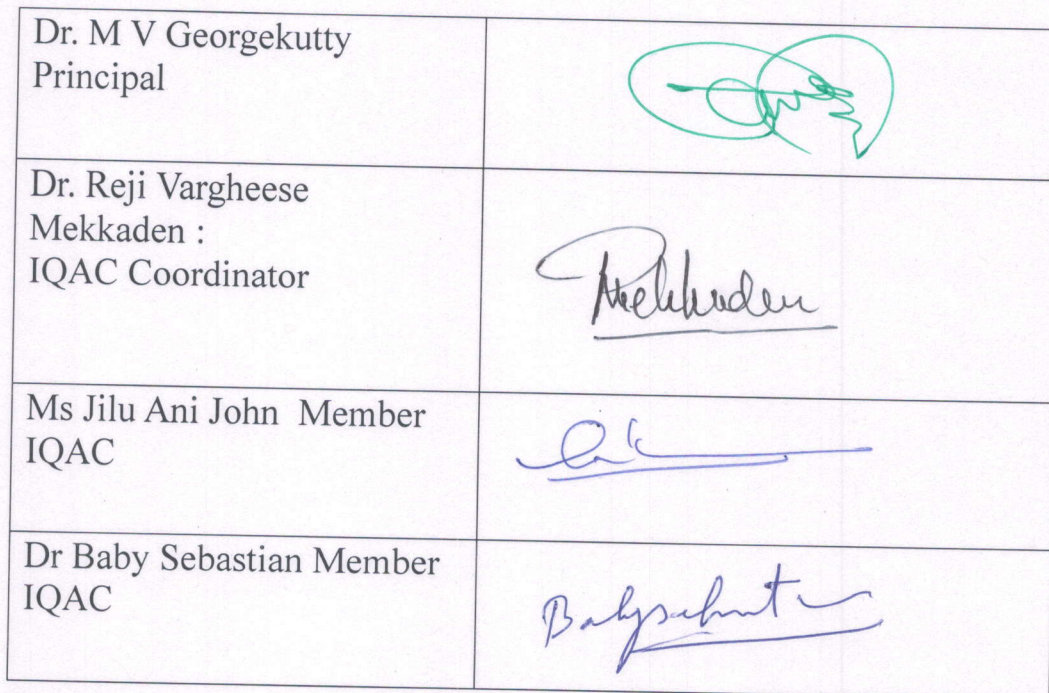 Dr. M V Georgekutty
Principal
Dr. Reji Vargheese
Mekkaden :
IQAC Coordinator
Mekkaden
Ms Jilu Ani John Member
IQAC
Dr Baby Sebastian Member
IQAC